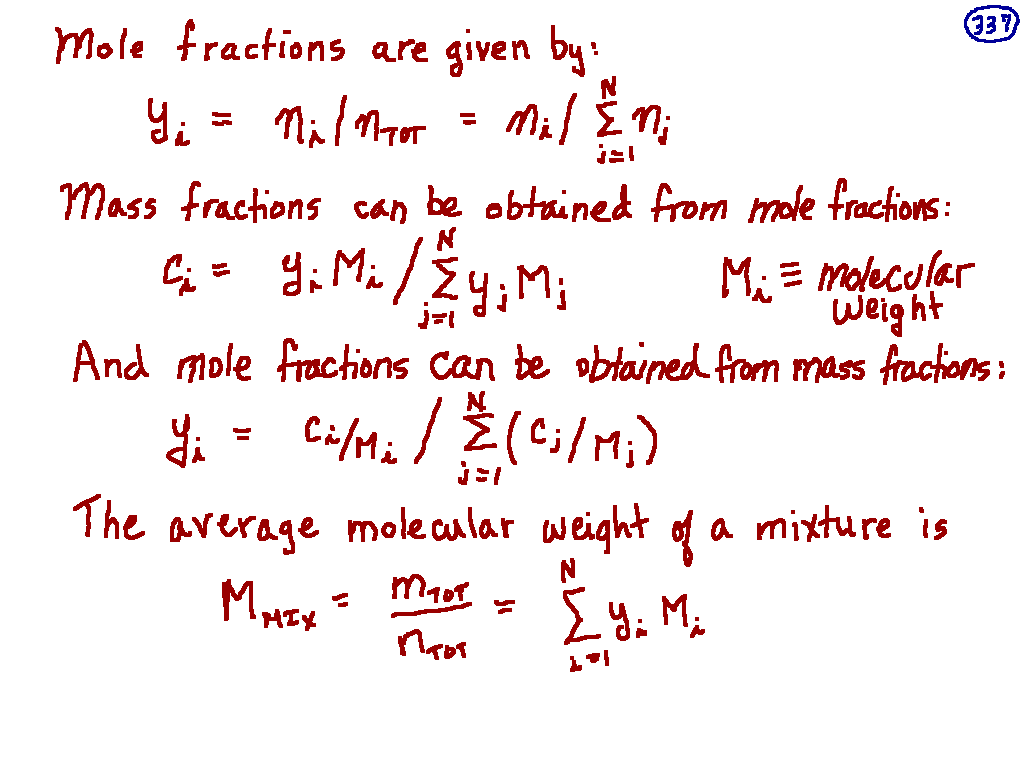 337
Mole fractions are given by:
yᵢ = nᵢ / n_TOT = nᵢ / ∑_{j=1}^{N} nⱼ
Mass fractions can be obtained from mole fractions:
cᵢ = yᵢ Mᵢ / ∑_{j=1}^{N} yⱼ Mⱼ    Mᵢ ≡ molecular weight
And mole fractions can be obtained from mass fractions:
yᵢ = cᵢ/Mᵢ / ∑_{j=1}^{N} (cⱼ/Mⱼ)
The average molecular weight of a mixture is
M_MIX = m_TOT / n_TOT = ∑_{i=1}^{N} yᵢ Mᵢ